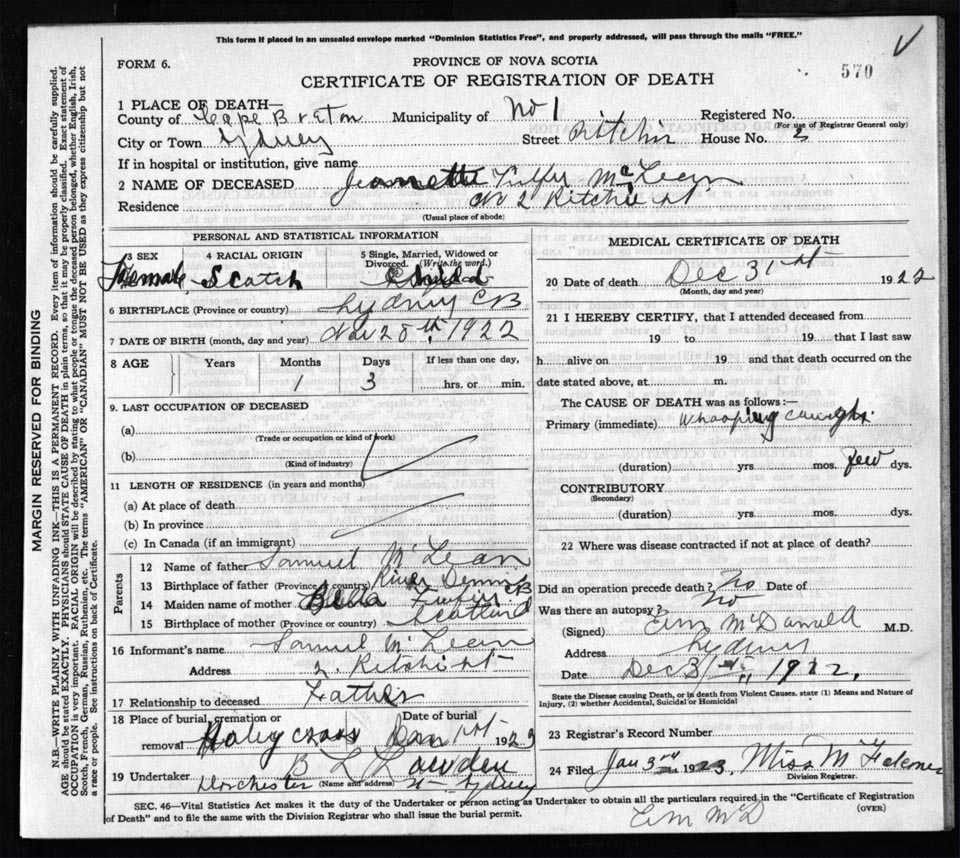 This form if placed in an unsealed envelope marked "Dominion Statistics Free", and properly addressed, will pass through the mails "FREE."
FORM 6.
PROVINCE OF NOVA SCOTIA
570
CERTIFICATE OF REGISTRATION OF DEATH
1 PLACE OF DEATH—
County of Cape Breton Municipality of No 1 Registered No.
(For use of Registrar General only)
City or Town Sydney Street Ritchie House No.
If in hospital or institution, give name
2 NAME OF DECEASED Jeannette McLean
Residence No 2 Ritchie St
(Usual place of abode)
PERSONAL AND STATISTICAL INFORMATION
3 SEX 4 RACIAL ORIGIN 5 Single, Married, Widowed or Divorced. (Write the word.)
Female Scotch Child
6 BIRTHPLACE (Province or country) Sydney CB
7 DATE OF BIRTH (month, day and year) Nov 28th, 1922
8 AGE Years Months Days If less than one day,
1 3 hrs. or min.
9. LAST OCCUPATION OF DECEASED
(a)
(Trade or occupation or kind of work)
(b)
(Kind of industry)
11 LENGTH OF RESIDENCE (in years and months)
(a) At place of death
(b) In province
(c) In Canada (if an immigrant)
Parents
12 Name of father Samuel McLean
13 Birthplace of father (Province or country) River Dennis CB
14 Maiden name of mother Bella
15 Birthplace of mother (Province or country) Scotland
16 Informant's name Samuel McLean
Address 2. Ritchie St
17 Relationship to deceased Father
18 Place of burial, cremation or removal Date of burial
Holey cross Jan 1st 1923
19 Undertaker B L
(Name and address)
Dorchester St Sydney
MEDICAL CERTIFICATE OF DEATH
20 Date of death Dec 31st 1922
(Month, day and year)
21 I HEREBY CERTIFY, that I attended deceased from
19 to 19 that I last saw
h alive on 19 and that death occurred on the
date stated above, at m.
The CAUSE OF DEATH was as follows:—
Primary (immediate) Whooping cough
(duration) yrs mos. few dys.
CONTRIBUTORY
(Secondary)
(duration) yrs. mos. dys.
22 Where was disease contracted if not at place of death?
Did an operation precede death? No Date of
Was there an autopsy? No
(Signed) McDonald M.D.
Address Sydney
Date Dec 31st, 1922,
State the Disease causing Death, or in death from Violent Causes, state (1) Means and Nature of
Injury, (2) whether Accidental, Suicidal or Homicidal
23 Registrar's Record Number
24 Filed Jan 3rd 1923, Miss M
Division Registrar.
SEC. 46—Vital Statistics Act makes it the duty of the Undertaker or person acting as Undertaker to obtain all the particulars required in the "Certificate of Registration
of Death" and to file the same with the Division Registrar who shall issue the burial permit.
(OVER)
MARGIN RESERVED FOR BINDING
N.B.—WRITE PLAINLY WITH UNFADING INK—THIS IS A PERMANENT RECORD. Every item of information should be carefully supplied.
AGE should be stated EXACTLY. PHYSICIANS should STATE CAUSE OF DEATH in plain terms, so that it may be properly classified. Exact statement of
OCCUPATION is very important. RACIAL ORIGIN will be described by stating to what people or tongue the deceased person belonged, whether English, Irish,
Scotch, French, German, Russian, Ruthenian, etc. The terms "AMERICAN" OR "CANADIAN" MUST NOT BE USED as they express citizenship but not
a race or people. See instructions on back of Certificate.